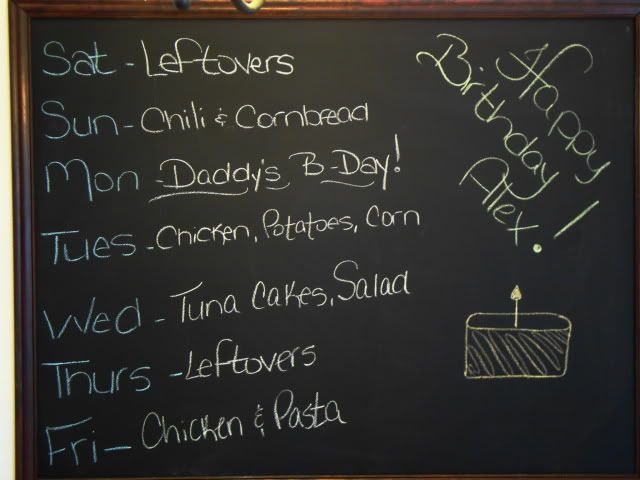 Sat - Leftovers
Sun - Chili & Cornbread
Mon - Daddy's B-Day!
Tues - Chicken, Potatoes, Corn
Wed - Tuna Cakes, Salad
Thurs - Leftovers
Fri - Chicken & Pasta
Happy
Birthday
Alet!